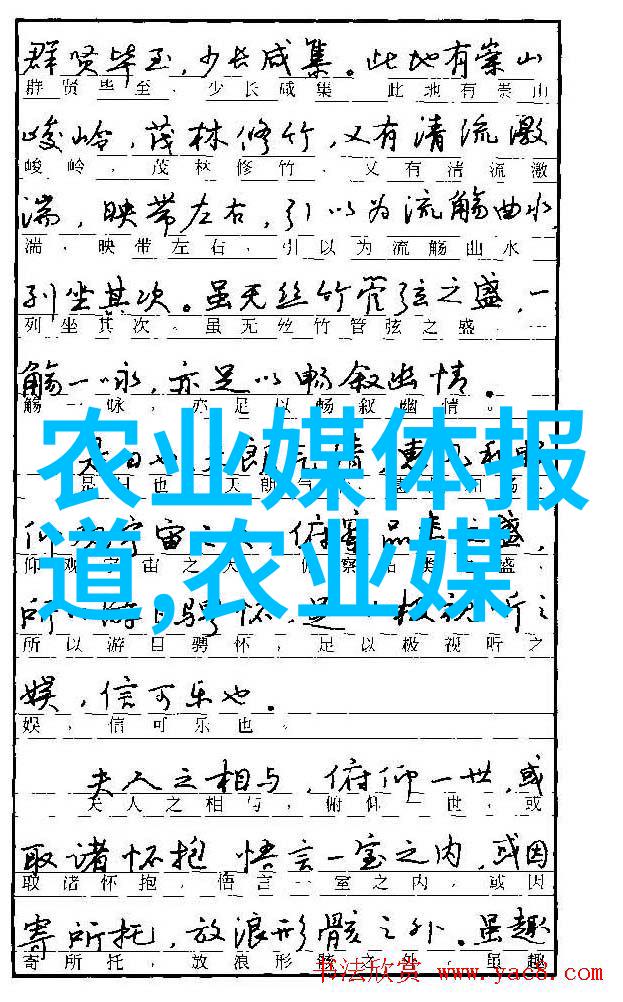 群贤毕至，少长咸集。此地有崇山
群贤毕至，少长咸集。此地有崇山
峻岭，茂林修竹，又有清流激
峻岭，茂林修竹，又有清流激
湍，映带左右，引以为流觞曲水，
湍，映带左右，引以为流觞曲水
列坐其次。虽无丝竹管弦之盛，一
列坐其次。虽无丝竹管弦之盛，一
觞一咏，亦足以畅叙幽情。
觞一咏，亦足以畅叙幽情。
农业媒体报
道,农业媒
是日也，天朗气清，惠风和
是日也，天朗气
仰观宇宙之大，俯察品类之盛，
仰观宇宙之大，俯察品类之盛，
所以游目骋怀，足以极视听之
所以游目骋怀，足以极视听之
娱，信可乐也。
娱，信可乐也。
夫人之相与，俯仰一世，或
夫人之相与，俯仰一世，或
取诸怀抱，悟言一室之内，或因
取诸怀抱，悟言一室之内，或因
寄所托，放浪形骸之外。虽趣
寄所托，放浪形骸之外。虽趣
书法欣赏 www.yac8.com